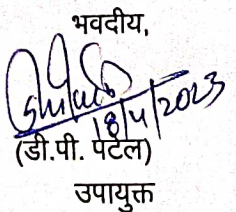 भवदीय,
18/4/2023
(डी.पी. पटेल)
उपायुक्त